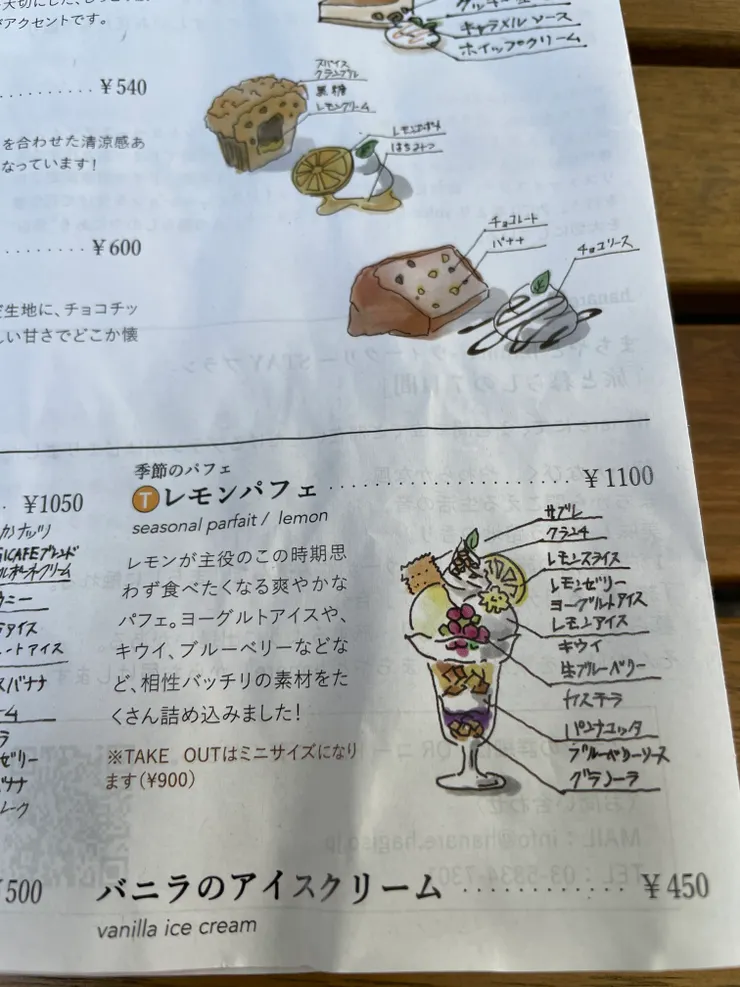 がアクセントです。
キャラメルソース
ホイップクリーム
¥540
スパイス
クランブル
黒糖
レモンクリーム
を合わせた清涼感あ
なっています！
はちみつ
¥600
チョコレート
バナナ
チョコソース
生地に、チョコチッ
しい甘さでどこか懐
¥1050
カナッツ
ウニー
アイス
ートアイス
スバナナ
ーム
ゼリー
バナナ
レーク
¥500
季節のパフェ
T レモンパフェ ¥1100
seasonal parfait / lemon
レモンが主役のこの時期思
わず食べたくなる爽やかな
パフェ。ヨーグルトアイスや、
キウイ、ブルーベリーなどな
ど、相性バッチリの素材をた
くさん詰め込みました！
※TAKE OUTはミニサイズになり
ます(¥900)
サブレ
クランチ
レモンスライス
レモンゼリー
ヨーグルトアイス
レモンアイス
キウイ
生ブルーベリー
カステラ
パンナコッタ
ブルーベリーソース
グラノーラ
バニラのアイスクリーム ¥450
vanilla ice cream